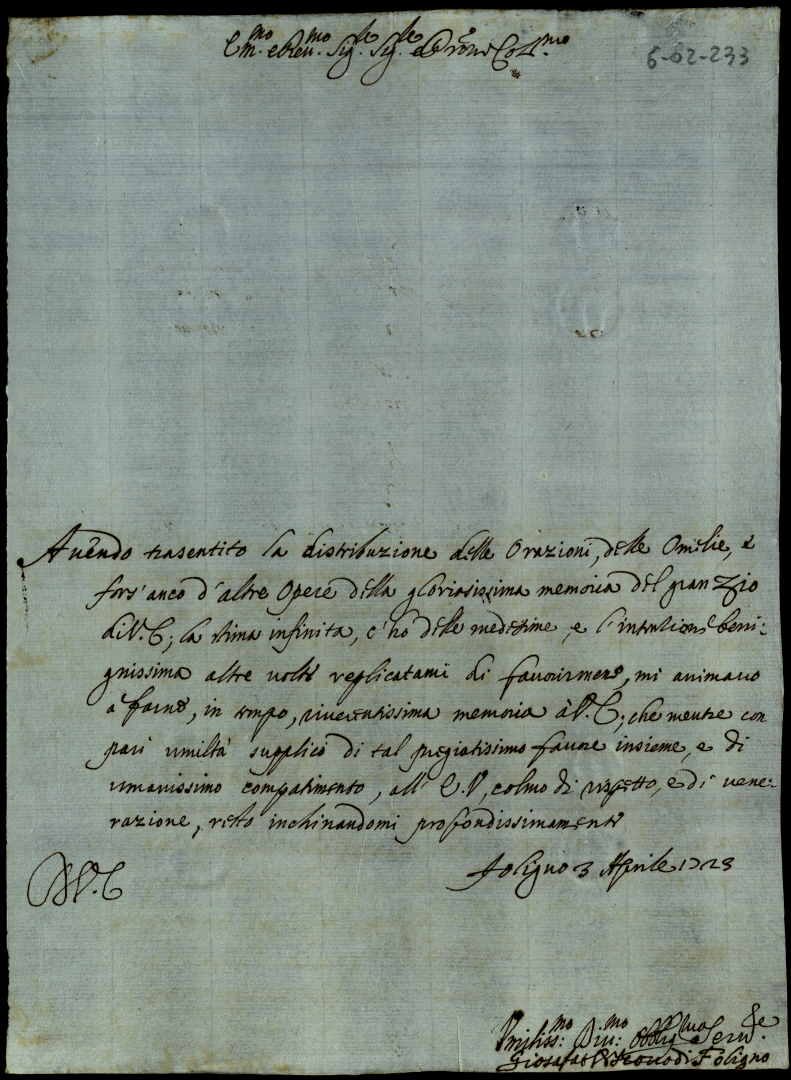 Em.mo e Reu.mo Sig.le Sig.le e Prōne Coll.mo
6-02-233
Auēndo trasentito la distribuzione delle Orazioni, delle Omelie, e
fors' anco d'altre Opere della gloriosissima memoria del gran Zio
di V. E; la stima infinita, c'hò delle medesime, e l'intenzione beni:
gnissima altre volte replicatami di fauorirmene, mi animano
à farne, in tempo, riuerentissima memoria à V. E; che mentre con
pari umiltà supplico di tal pregiatissimo fauore insieme, e di
umanissimo compatimento, all' E. V, colmo di rispetto, e di vene:
razione, resto inchinandomi profondissimamente
Foligno 3 Aprile 1723
D V. E
Vmiliss:mo Diu:mo Obblig.mo Seru.
Giosafat Vescouo di Foligno